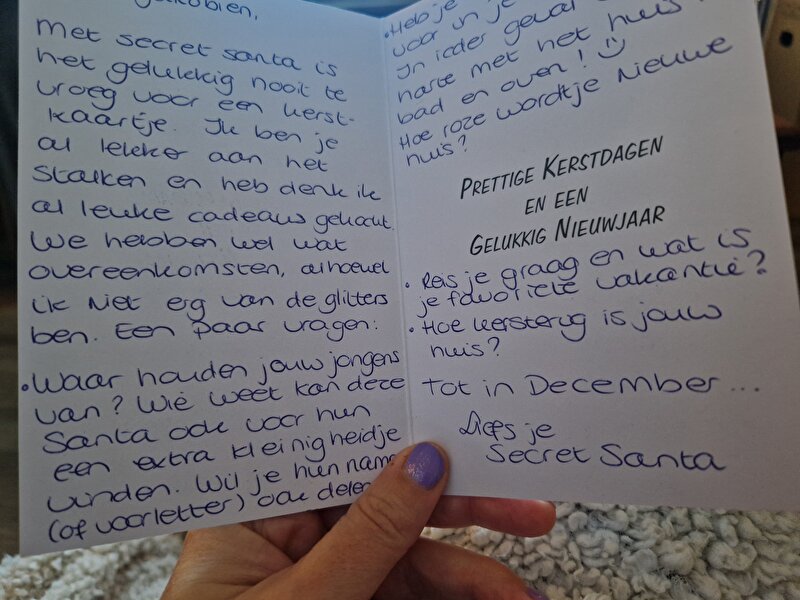 Met secret santa is
het gelukkig nooit te
vroeg voor een kerst-
kaartje. Ik ben je
al lekker aan het
stalken en heb denk ik
al leuke cadeaus gekocht.
We hebben wel wat
overeenkomsten, alhoewel
ik niet erg van de glitters
ben. Een paar vragen:
• Waar houden jouw jongens
van? Wie weet kan deze
Santa ook voor hun
een extra kleinigheidje
vinden. Wil je hun name
(of voorletter) ook delen
• Heb je
voor in je
In ieder geval
harte met het huis
bad en oven! :)
Hoe roze wordt je nieuwe
huis?
PRETTIGE KERSTDAGEN
EN EEN
GELUKKIG NIEUWJAAR
• Reis je graag en wat is
je favoriete vakantie?
• Hoe kersterig is jouw
huis?
Tot in December...
Liefs je
Secret Santa